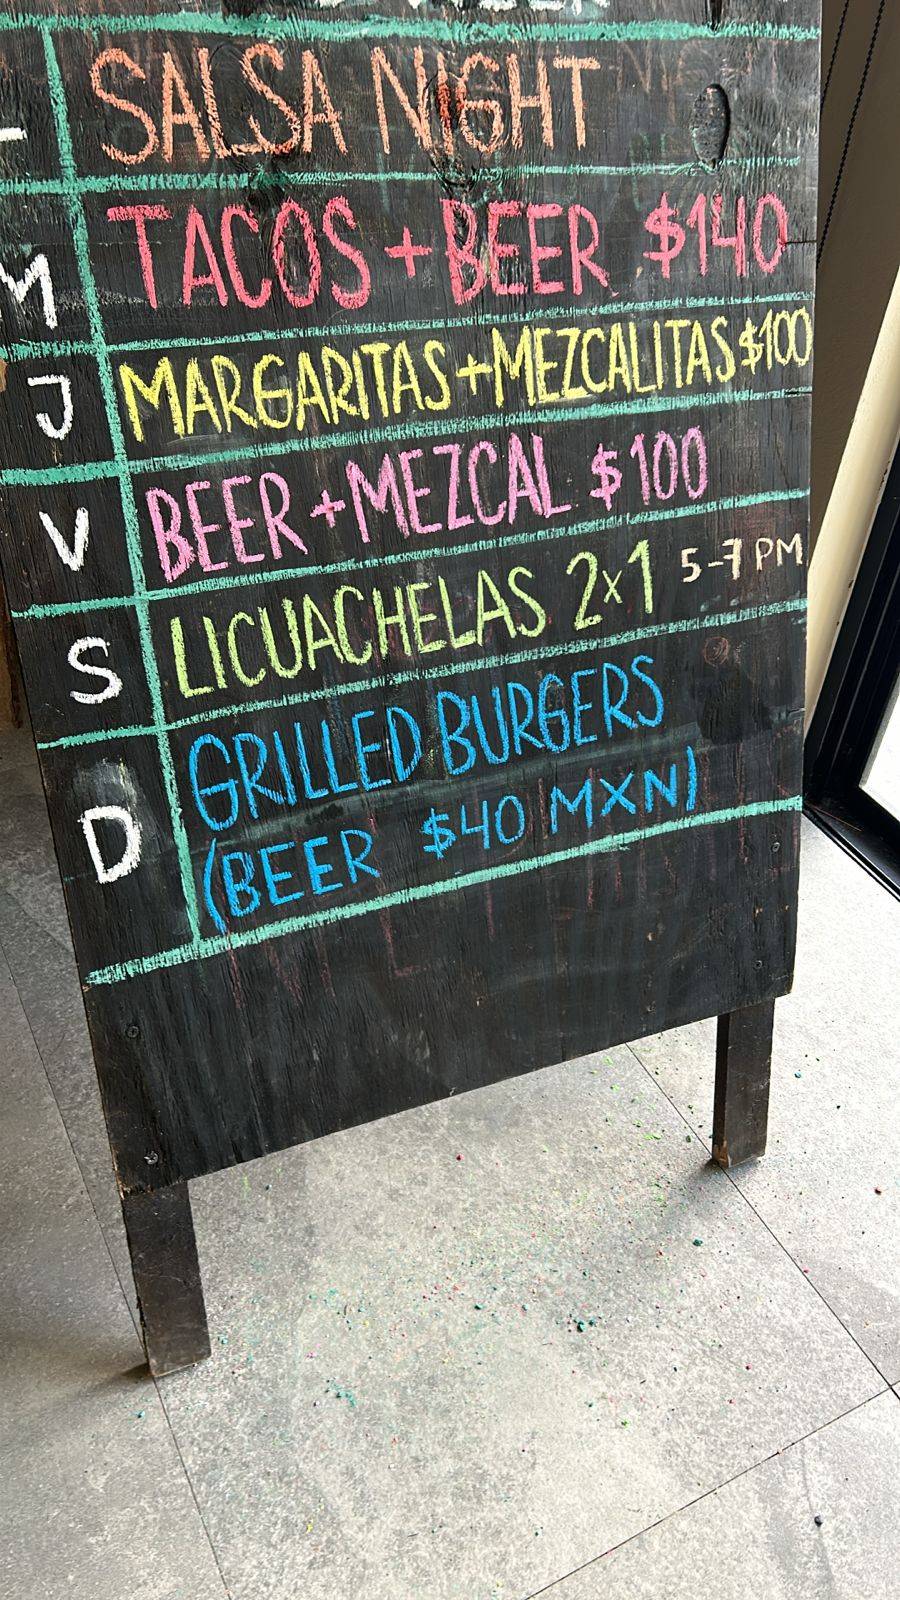 SALSA NIGHT
M TACOS + BEER $140
J MARGARITAS + MEZCALITAS $100
V BEER + MEZCAL $100
S LICUACHELAS 2x1 5-7 PM
D GRILLED BURGERS
(BEER $40 MXN)